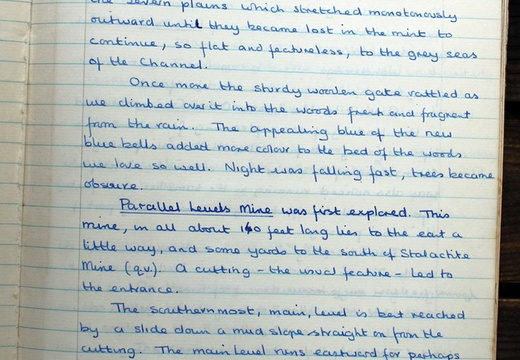 the Severn plains which stretched monotonously
outward until they became lost in the mist to
continue, so flat and featureless, to the grey seas
of the Channel.
Once more the sturdy wooden gate rattled as
we climbed over it into the woods fresh and fragrant
from the rain. The appealing blue of the new
blue bells added more colour to the bed of the woods
we love so well. Night was falling fast, trees became
obscure.
Parallel Levels Mine was first explored. This
mine, in all about 140 feet long lies to the east a
little way, and some yards to the south of Stalactite
Mine (q.v.). A cutting - the usual feature - led to
the entrance.
The southernmost, main, level is best reached
by a slide down a mud slope straight on from the
cutting. The main level runs eastward for perhaps